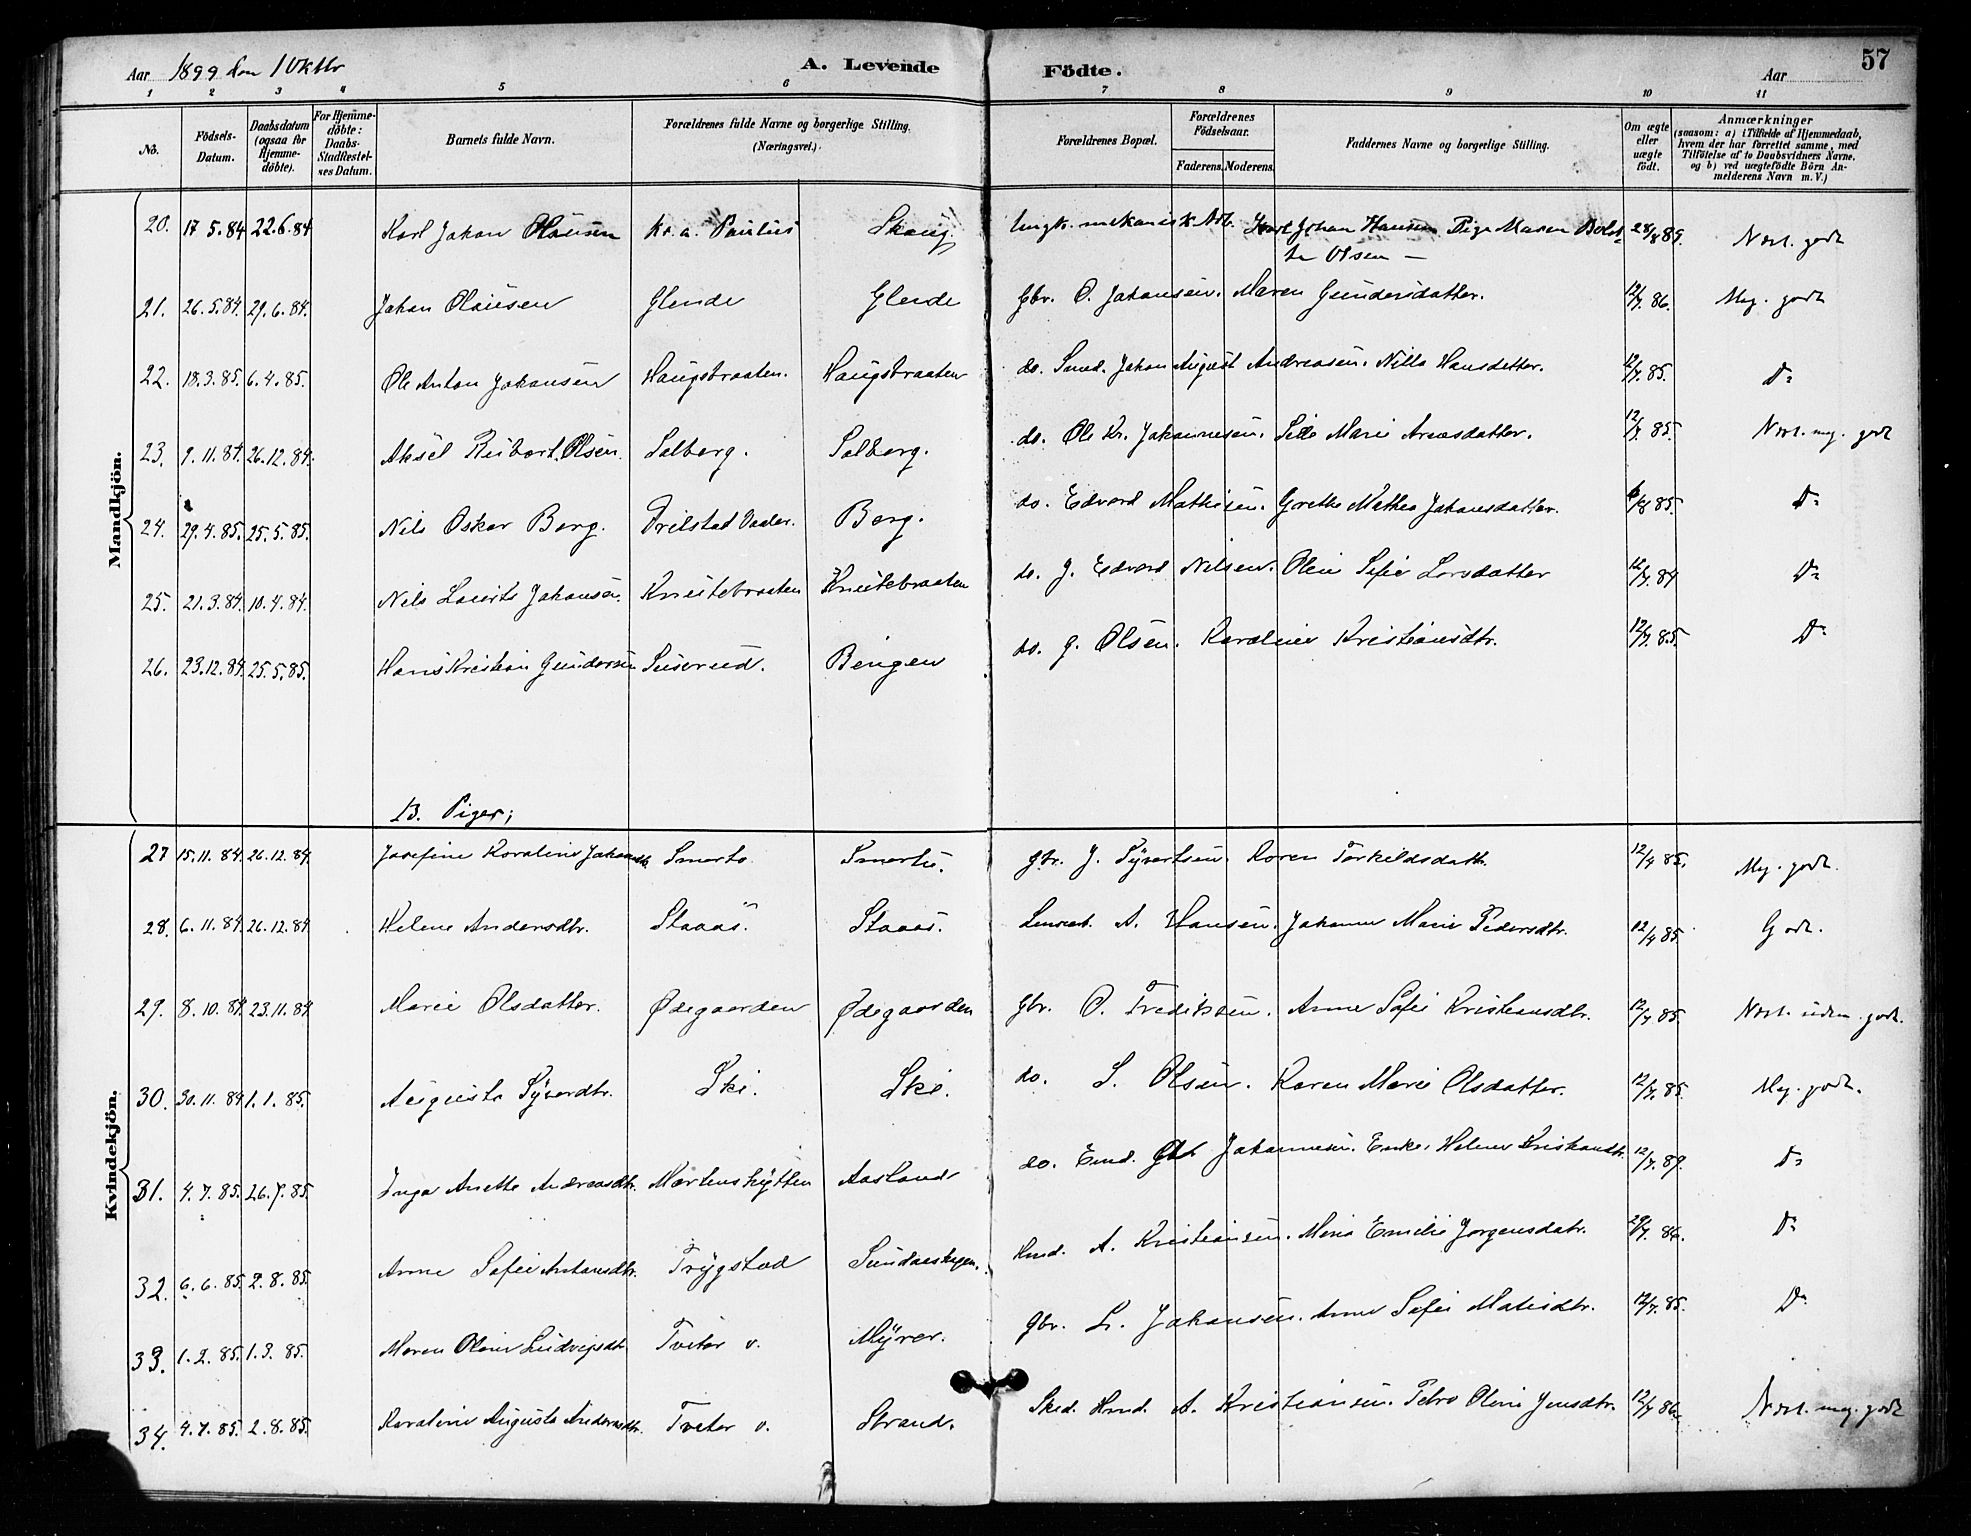 Aar 1899 den 1 Oktbr A. Levende Födte. Aar 57
1 2 3 4 5 6 7 8 9 10 11
No. Födsels-Datum. Daabsdatum (ogsaa for Hjemmedöbte). For Hjemmedöbte: Daabs-Stadfæstelses Datum. Barnets fulde Navn. Forældrenes fulde Navne og borgerlige Stilling. (Næringsvei.) Forældrenes Bopæl. Forældrenes Födselsaar. Faderens. Moderens. Faddernes Navne og borgerlige Stilling. Om ægte eller uægte födt. Anmærkninger (saasom: a) i Tilfælde af Hjemmedaab, hvem der har forrettet samme, med Tilföielse af to Daabsvidners Navne, og b) ved uægtefödte Börn Anmelderens Navn m. V.)
Mandkjön.
20. 17 5. 84 22. 6. 84 Karl Johan Hansen Kr.a. Paulus Skaug Ungk. mekanisk Arb. Karl Johan Hansen Pige Maren Bolet-
te Olsen — 28/8 85. Nost. godt
21. 26. 5. 84. 29. 6. 84. Johan Olausen Glende Glende Gbr. O. Johansen. Maren Gundersdatter. 12/7. 86. Meg. godt
22. 18. 3. 85. 6. 4. 85. Ole Anton Johansen Haugsbraaten. Haugsbraaten do. Smd. Johan August Andreasen. Nilla Hansdatter. 12/7. 85. Do
23. 9. 11. 84. 26. 12. 84. Aksel Olsen. Solberg. Solberg. do. Ole Kr. Johannesen. Marie 12/7. 85. Nost. meg. godt
24. 29. 4. 85. 25. 5. 85. Nils Oskar Berg. Berg. do. Edvard Mathisen. Grethe Mathea Johansdatter. 85. Do
25. 21. 3. 84. 10. 4. 84. Nils Laurits Johansen. Knutebraaten Knutebraaten do. J. Edvard Nilsen. Oline Sofie Larsdatter 12/7. 84 Do
26. 23. 12. 84. 25. 5. 85. Hans Kristian Gundersen Suserud. Bingen do. G. Olsen. Karoline Kristiansdtr. 12/7. 85. Do
B. Piger;
Kvindekjön.
27 15. 11. 84. 26. 12. 84. Josefine Karoline Johansdtr. Smerta Smerta. Gbr. J. Syvertsen. Karen Torkildsdattr. 12/7 85. Meg. godt.
28. 6. 11. 84. 26. 12. 84 Helene Andersdtr. Staaas. Staaas. A. Hansen. Johanne Marie Pedersdtr. 12/7 85 Godt.
29. 8. 10. 84. 23. 11. 84 Marie Olsdatter. Ødegaarden Ødegaarden Gbr. O. Fredriksen. Anne Sofie Kristiansdtr. 12/7 85. Nost. uden. godt.
30. 30. 11. 84 1. 1. 85. Augusta Syverdtr. Ski. Ski. do. S. Olsen. Karen Marie Olsdatter. 12/7. 85. Meg. godt.
31. 4. 7. 85. 26. 7. 85. Inga Anette Andreasdtr. Martenshytten Aasland do. Emd. Johannesen. Enke. Helene Kristiansdtr. 12/7. 87. Do
32. 6. 6. 85. 2. 8. 85. Anne Sofie Antonsdtr. Trygstad Hmd. A. Kristiansen. Maria Emilie Jorgensdatr. 29/7. 86. Do
33. 1. 2. 85. 1. 3. 85. Maren Oline Ludvigsdtr Tveter v. Myrer. Gbr. L. Johansen. Anne Sofie Matisdtr. 12/7. 85. Do
34. 4. 7. 85. 2. 8. 85. Karoline Augusta Andersdtr. Tveter v. Strand. Hmd. A. Kristiansen. Petra Oline Jensdtr. 12/7 86. Nost. meg. godt